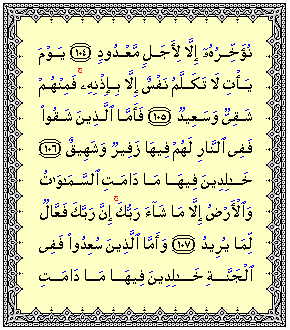 نُؤَخِّرُهُۥٓ إِلَّا لِأَجَلٍ مَّعْدُودٍ ﴿١٠٤﴾ يَوْمَ
يَأْتِ لَا تَكَلَّمُ نَفْسٌ إِلَّا بِإِذْنِهِۦ ۚ فَمِنْهُمْ
شَقِىٌّ وَسَعِيدٌ ﴿١٠٥﴾ فَأَمَّا ٱلَّذِينَ شَقُوا۟
فَفِى ٱلنَّارِ لَهُمْ فِيهَا زَفِيرٌ وَشَهِيقٌ ﴿١٠٦﴾
خَـٰلِدِينَ فِيهَا مَا دَامَتِ ٱلسَّمَـٰوَٰتُ
وَٱلْأَرْضُ إِلَّا مَا شَآءَ رَبُّكَ ۚ إِنَّ رَبَّكَ فَعَّالٌ
لِّمَا يُرِيدُ ﴿١٠٧﴾ وَأَمَّا ٱلَّذِينَ سُعِدُوا۟ فَفِى
ٱلْجَنَّةِ خَـٰلِدِينَ فِيهَا مَا دَامَتِ